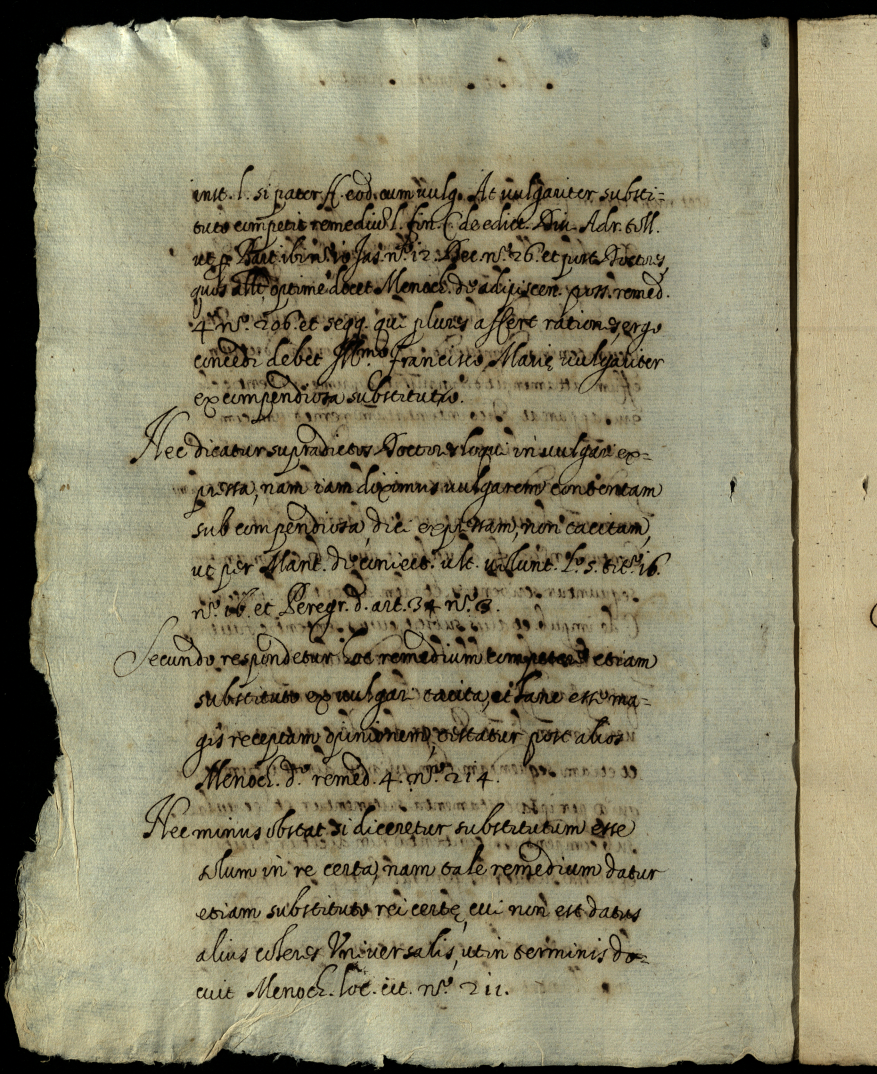 inst. l. si pater ff. eod. cum vulg. At vulgariter substi=
tuto competit remediũ l. fin. C. de edict. Diu. Adr. toll.
ut p. Bart. ibi nº. 10. Jas. nº. 12. Dec. nº. 26. et post Doctores
quos all. optime docet Menoch. de adipiscen. poss. remed.
4. nº. 206. et seqq. qui plures affert rationes, ergo
concedi debet Illmo. Francisco Marię vulgariter
ex compendiosa substituto.
Nec dicatur supradictos Doctores loqui in vulgari ex=
pressa, nam iam diximus vulgarem contentam
sub compendiosa, dici expressam, non tacitam,
ut per Mant. de coniect. ult. volunt. l.º 5. tit.º 16.
nº. 16. et Peregr. d. art. 34. nº. 3.
Secundo respondetur hoc remedium competere etiam
substituto ex vulgari tacita, et hanc esse ma=
gis receptam opinionem, testatur post alios
Menoch. d.º remed. 4. nº. 214.
Nec minus obstat si diceretur substitutum esse
solum in re certa, nam tale remedium datur
etiam substituto rei certę, cui non est datus
alius coheres Vniversalis, ut in terminis do=
cuit Menoch. loc. cit. nº. 211.